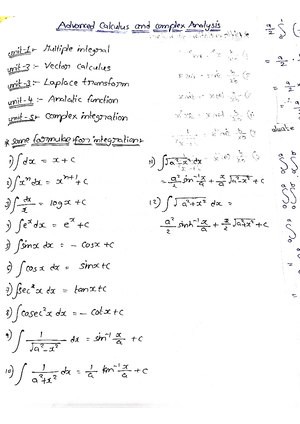 Advanced Calculus and complex Analysis
unit-1:- Multiple integral
unit-2:- Vector calculus
unit-3:- Laplace transform
unit-4:- Analatic function
unit-5:- Complex integration
* Some formulae for integration:
1) ∫dx = x+c
2) ∫xⁿdx = xⁿ⁺¹+c
3) ∫dx/x = logx+c
4) ∫eˣdx = eˣ+c
5) ∫sinx dx = -cosx+c
6) ∫cosx dx = sinx+c
7) ∫sec²x dx = tanx+c
8) ∫cosec²x dx = -cotx+c
9) ∫ 1/√a²-x² dx = sin⁻¹ x/a + c
10) ∫ 1/a²+x² dx = 1/a tan⁻¹ x/a + c
11) ∫√a²-x² dx
= a²/2 sin⁻¹ x/a + x/2 √a²-x² + c
12) ∫√a²+x² dx =
a²/2 sinh⁻¹ x/a + x/2 √a²+x² + c